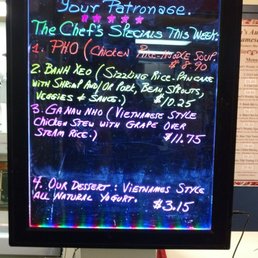 Your Patronage.
★★★★★
The Chef's Specials This Week:
1. PHO (Chicken Rice-Noodle Soup.
$8.90
2. Banh Xeo (Sizzling Rice-Pancake
with Shrimp and/or Pork, Bean Sprouts,
Veggies & Sauce.) $10.25
3. Ga Nau Nho (Vietnamese Style
Chicken Stew with Grape over
Steam Rice.) $11.75
4. Our Dessert: Vietnames Style
All Natural Yogurt. $3.15